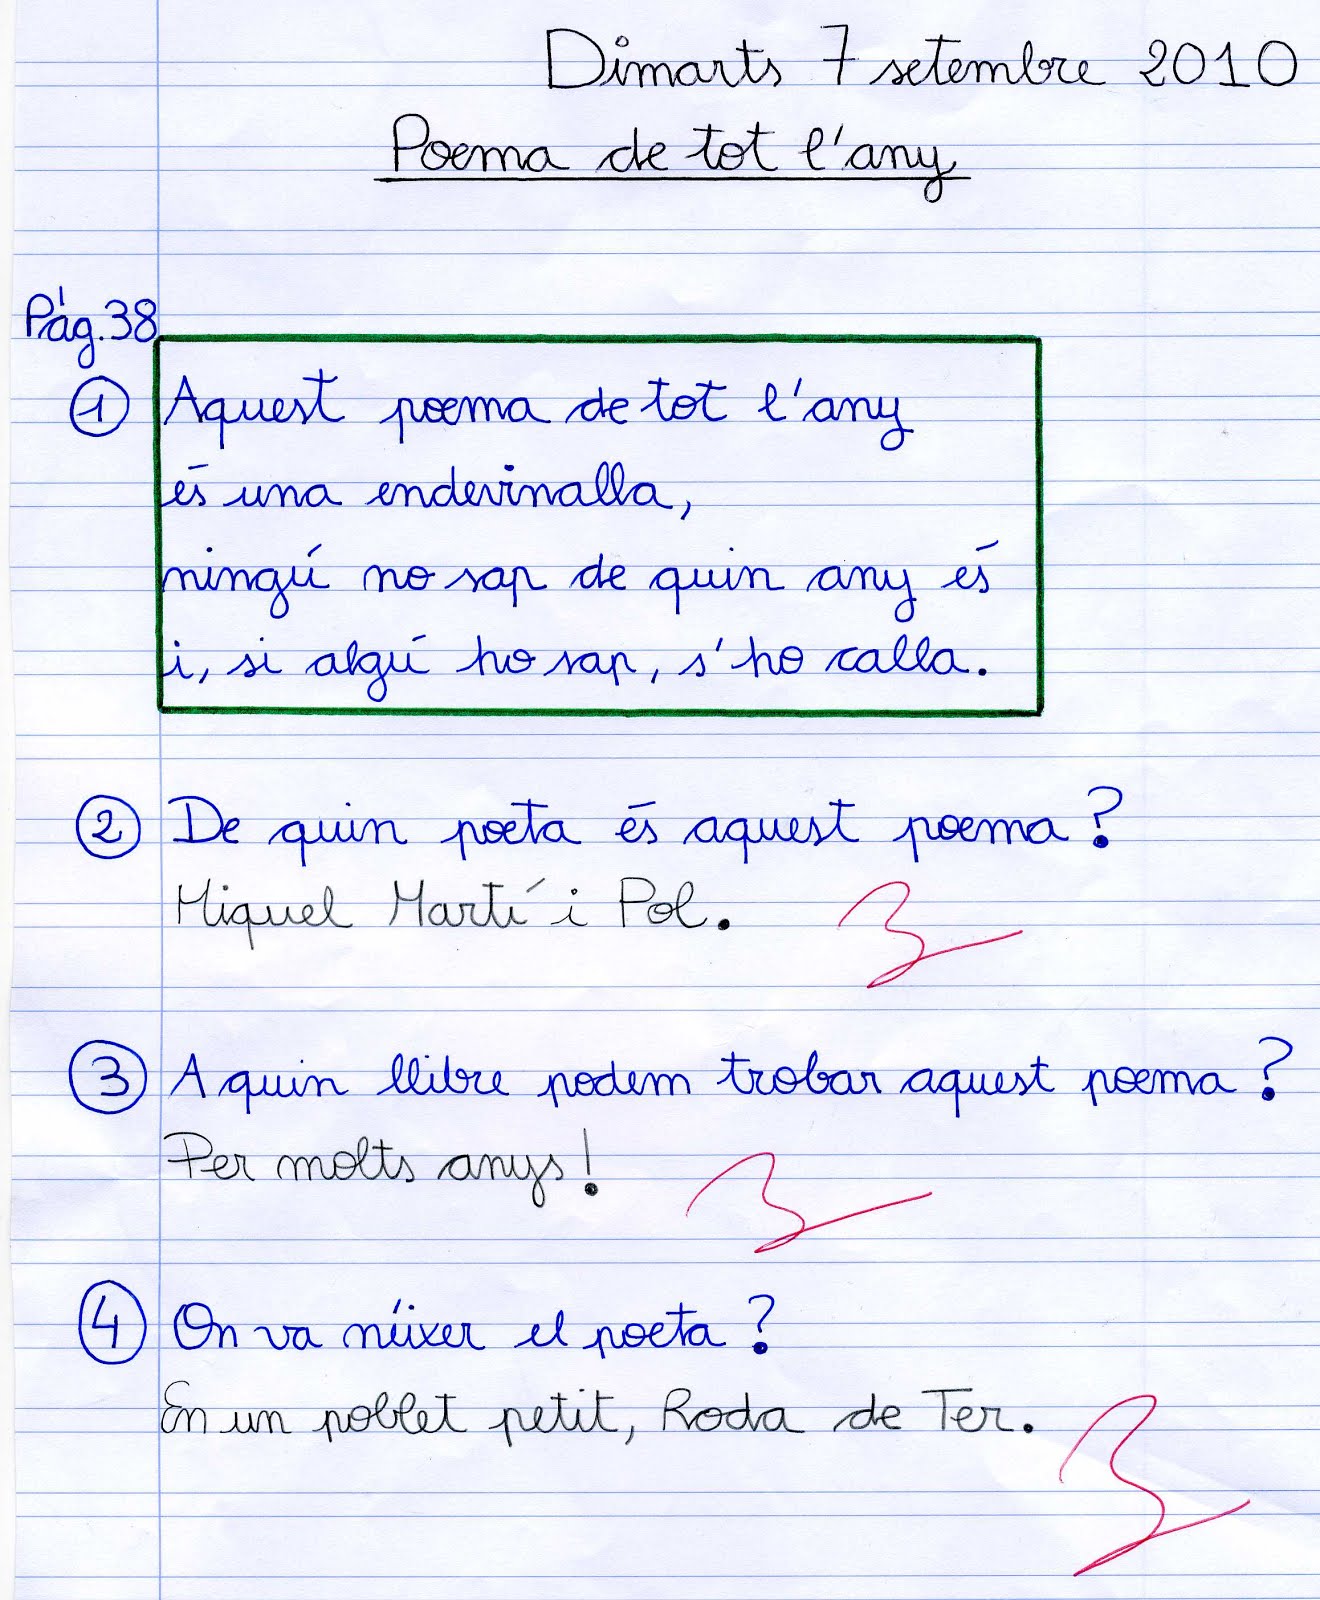 Dimarts 7 setembre 2010
Poema de tot l'any
Pág.38
1 Aquest poema de tot l'any
és una endevinalla,
ningú no sap de quin any és
i, si algú ho sap, s'ho calla.
2 De quin poeta és aquest poema?
Miquel Martí i Pol.
3 A quin llibre podem trobar aquest poema?
Per molts anys!
4 On va néixer el poeta?
En un poblet petit, Roda de Ter.